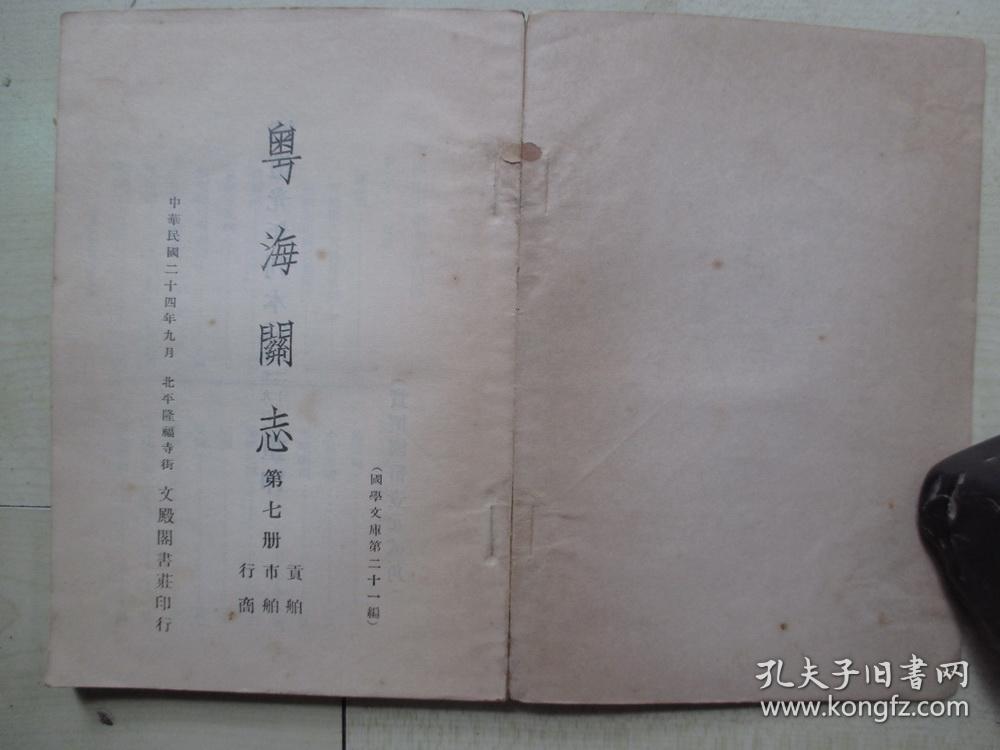 (國學文庫第二十一編)
粵海關志第七册
貢舶
市舶
行商
中華民國二十四年九月 北平隆福寺街 文殿閣書莊印行
孔夫子旧書网
www.kongfz.com